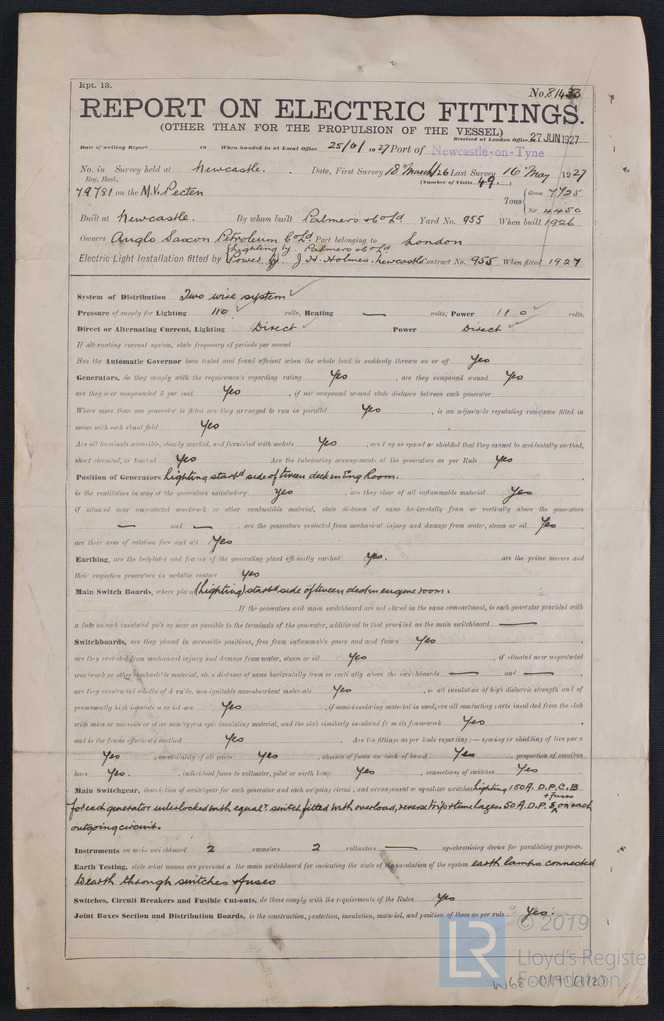 Rpt. 13.
No. 81433
REPORT ON ELECTRIC FITTINGS.
(OTHER THAN FOR THE PROPULSION OF THE VESSEL)
Received at London Office 27 JUN 1927
Date of writing Report 19 When handed in at Local Office 25/6/1927 Port of Newcastle-on-Tyne
No. in Survey held at Newcastle. Date, First Survey 18th March/26 Last Survey 16th May 1927
Reg. Book. (Number of Visits 49.)
79781 on the M.V. Pecten Tons Gross 7725
Net 4450
Built at Newcastle. By whom built Palmers & Co Ld Yard No. 955 When built 1926
Owners Anglo Saxon Petroleum Co Ld Port belonging to London
Lighting by Palmers & Co Ld
Electric Light Installation fitted by Power by J H Holmes. Newcastle Contract No. 955 When fitted 1927
System of Distribution Two wire system
Pressure of supply for Lighting 110 volts, Heating — volts, Power 110 volts.
Direct or Alternating Current, Lighting Direct Power Direct
If alternating current system, state frequency of periods per second
Has the Automatic Governor been tested and found efficient when the whole load is suddenly thrown on or off Yes
Generators, do they comply with the requirements regarding rating Yes, are they compound wound Yes
are they over compounded 5 per cent. Yes, if not compound wound state distance between each generator
Where more than one generator is fitted are they arranged to run in parallel Yes, is an adjustable regulating resistance fitted in
series with each shunt field Yes
Are all terminals accessible, clearly marked, and furnished with sockets Yes, are they so spaced or shielded that they cannot be accidentally earthed,
short circuited, or touched Yes Are the lubricating arrangements of the generators as per Rule Yes
Position of Generators Lighting starbd side of tween deck in Eng Room.
is the ventilation in way of the generators satisfactory yes, are they clear of all inflammable material Yes
if situated near unprotected woodwork or other combustible material, state distance of same horizontally from or vertically above the generators
— and —, are the generators protected from mechanical injury and damage from water, steam or oil Yes,
are their axes of rotation fore and aft Yes
Earthing, are the bedplates and frames of the generating plant efficiently earthed Yes. are the prime movers and
their respective generators in metallic contact Yes
Main Switch Boards, where placed (Lighting) starbd side of tween deck in engine room.
If the generators and main switchboard are not placed in the same compartment, is each generator provided with
a fuse on each insulated pole as near as possible to the terminals of the generator, additional to that provided on the main switchboard —
Switchboards, are they placed in accessible positions, free from inflammable gases and acid fumes Yes
are they protected from mechanical injury and damage from water, steam or oil Yes, if situated near unprotected
woodwork or other combustible material, state distance of same horizontally from or vertically above the switchboards — and —
are they constructed wholly of durable, non-ignitable non-absorbent materials Yes, is all insulation of high dielectric strength and of
permanently high insulation resistance Yes, if semi-insulating material is used, are all conducting parts insulated from the slab
with mica or micanite or other non-hygroscopic insulating material, and the slab similarly insulated from its framework Yes,
and is the frame effectively earthed Yes Are the fittings as per Rule regarding:— spacing or shielding of live parts
Yes, accessibility of all parts Yes, absence of fuses on back of board Yes, proportion of omnibus
bars Yes. individual fuses to voltmeter, pilot or earth lamp Yes, connections of switches Yes
Main Switchgear, description of switchgear for each generator and each outgoing circuit, and arrangement of equalizer switches Lighting 150 A. D.P.C.B
for each generator interlocked with equalr switch fitted with overload, reverse trip & time lags. 50 A. D.P.S. + fuses on each
outgoing circuit.
Instruments on main switchboard 2 ammeters 2 voltmeters — synchronising device for paralleling purposes.
Earth Testing, state what means are provided at the main switchboard for indicating the state of the insulation of the system earth lamps connected
to earth through switches & fuses
Switches, Circuit Breakers and Fusible Cut-outs, do these comply with the requirements of the Rules Yes
Joint Boxes Section and Distribution Boards, is the construction, protection, insulation, material, and position of these as per rule Yes.
© 2019
LR
Lloyd's Register
Foundation